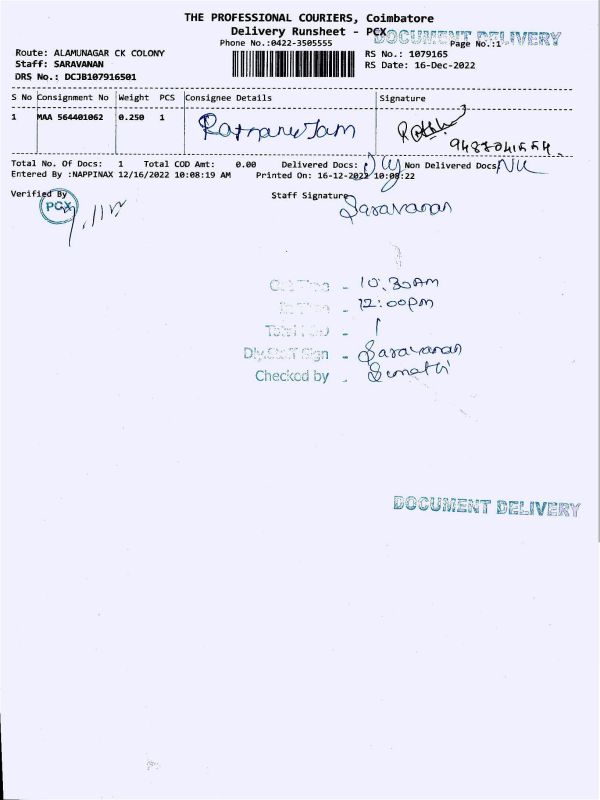 THE PROFESSIONAL COURIERS, Coimbatore
Delivery Runsheet - PCX
DOCUMENT DELIVERY
Phone No.:0422-3505555
Page No.:1
Route: ALAMUNAGAR CK COLONY
RS No.: 1079165
Staff: SARAVANAN
RS Date: 16-Dec-2022
DRS No.: DCJB107916501
S No Consignment No Weight PCS Consignee Details Signature
1 MAA 564401062 0.250 1
Total No. Of Docs: 1 Total COD Amt: 0.00 Delivered Docs: Non Delivered Docs: Nil
Entered By :NAPPINAX 12/16/2022 10:08:19 AM Printed On: 16-12-2022 10:08:22
Verified By Staff Signature
PCX
Saravanan
10.30AM
12:00pm
- 1
Dly.Staff Sign - Saravanan
Checked by - Sumathi
DOCUMENT DELIVERY